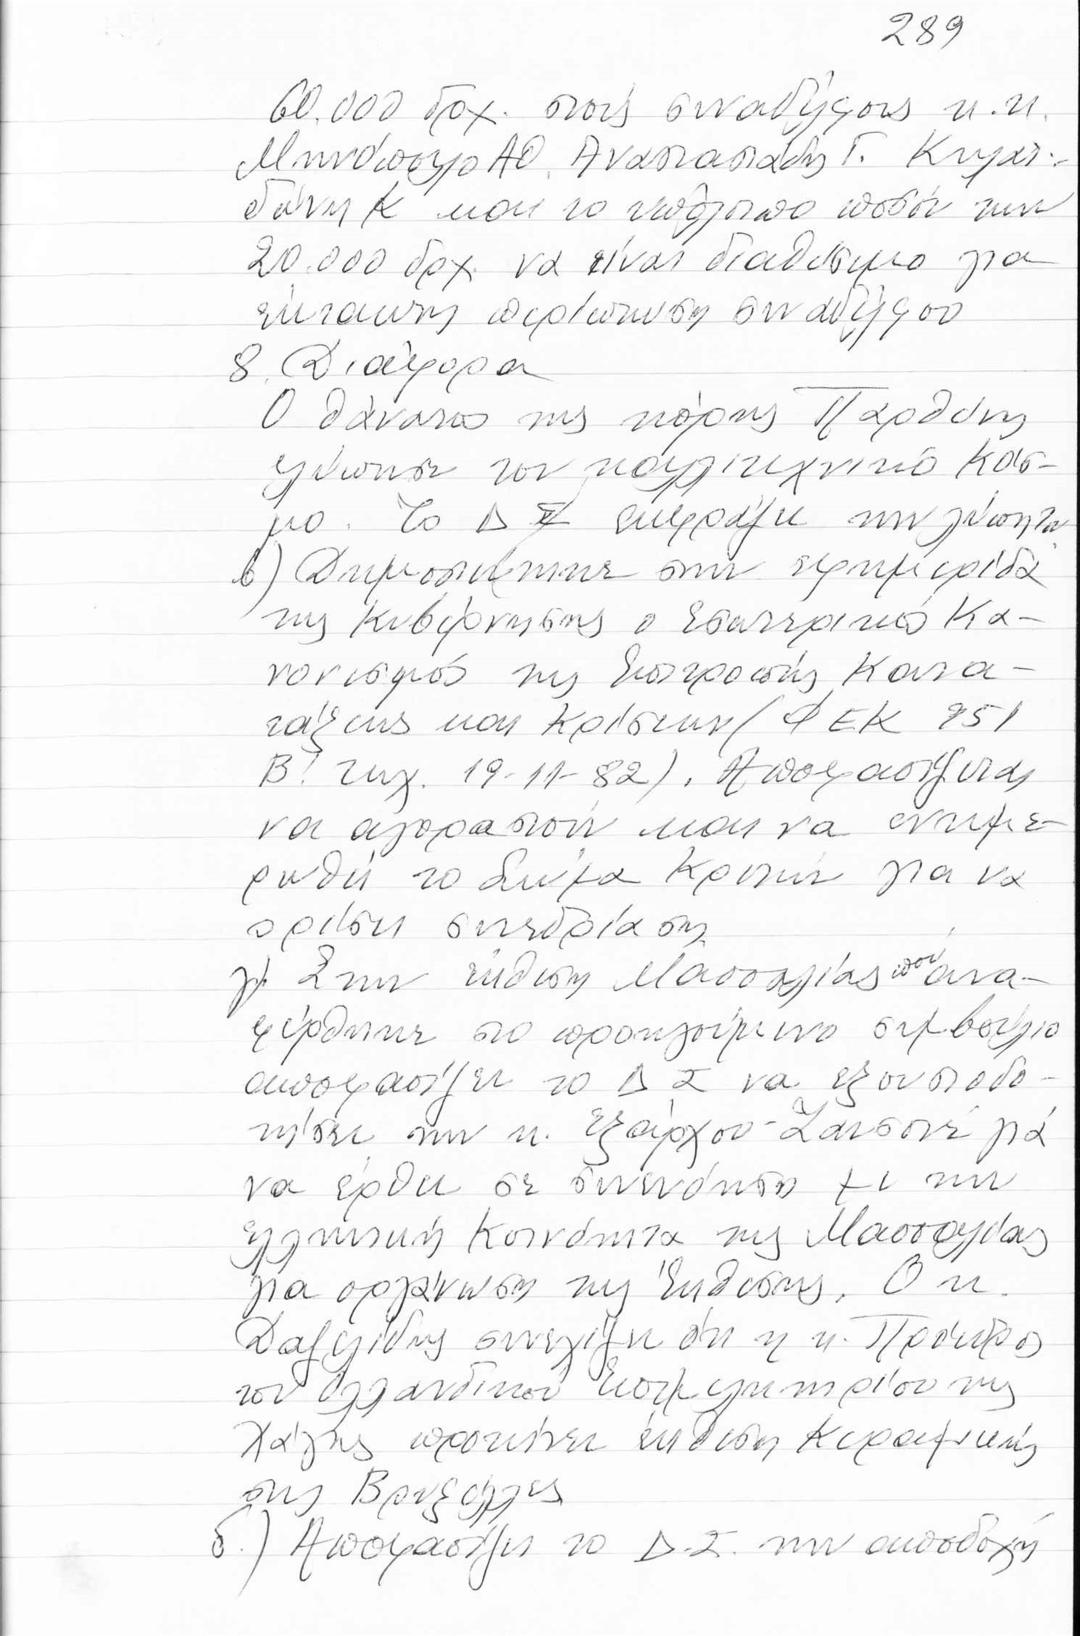 289
60.000 δρχ. στούς συναδέλφους κ.κ.
Αθ. Αναστασιάδη Γ.
Κ και το υπόλοιπο ποσόν των
20.000 δρχ. να είναι διαθέσιμο για
έκτακτη περίπτωση συναδέλφου
8. Διάφορα
Ο θάνατος της κόρης Παρθένη
λύπησε τον καλλιτεχνικό κόσ-
μο. Το Δ Σ εκφράζει την λύπη του
β) Δημοσιεύτηκε στην εφημερίδα
της Κυβέρνησης ο Εσωτερικός Κα-
νονισμός της Επιτροπής Κατα-
τάξεως και Κρίσεων (ΦΕΚ 951
Β! τευχ. 19-11-82). Αποφασίζεται
να αγοραστούν και να ενημε-
ρωθή το Σώμα Κριτών για να
ορίσει συνεδρίαση
γ) Στην έκθεση Μασσαλίας που ανα-
φέρθηκε στο προηγούμενο συμβούλιο
αποφασίζει το Δ Σ να εξουσιοδο-
τήσει την κ. Εξάρχου- γιά
να έρθει σε συνενόηση με την
ελληνική Κοινότητα της Μασσαλίας
για οργάνωση της Έκθεσης. Ο κ.
συνεχίζει ότι η κ. Πρόεδρος
του ολλανδικού Επιμελητηρίου της
Χάγης προτείνει έκθεση Κεραμικής
στις Βρυξέλλες
δ.) Αποφασίζει το Δ.Σ. την αποδοχή